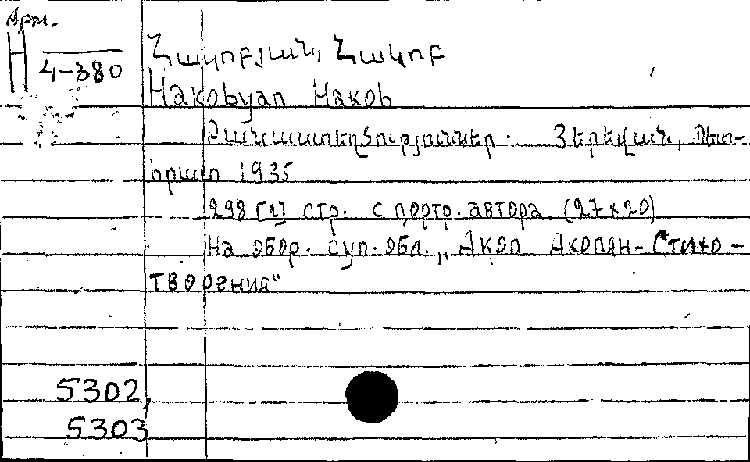 Арм.
H 4-380
Հակոբյան, Հակոբ
Hakobyan Hakob
Բանաստեղծություններ. Յերեվան, Պետ-
հրատ 1935
298 [1] стр. с портр. автора. (27×20)
На обор. суп. обл. „Акоп Акопян - Стихо-
творения"
5302,
5303